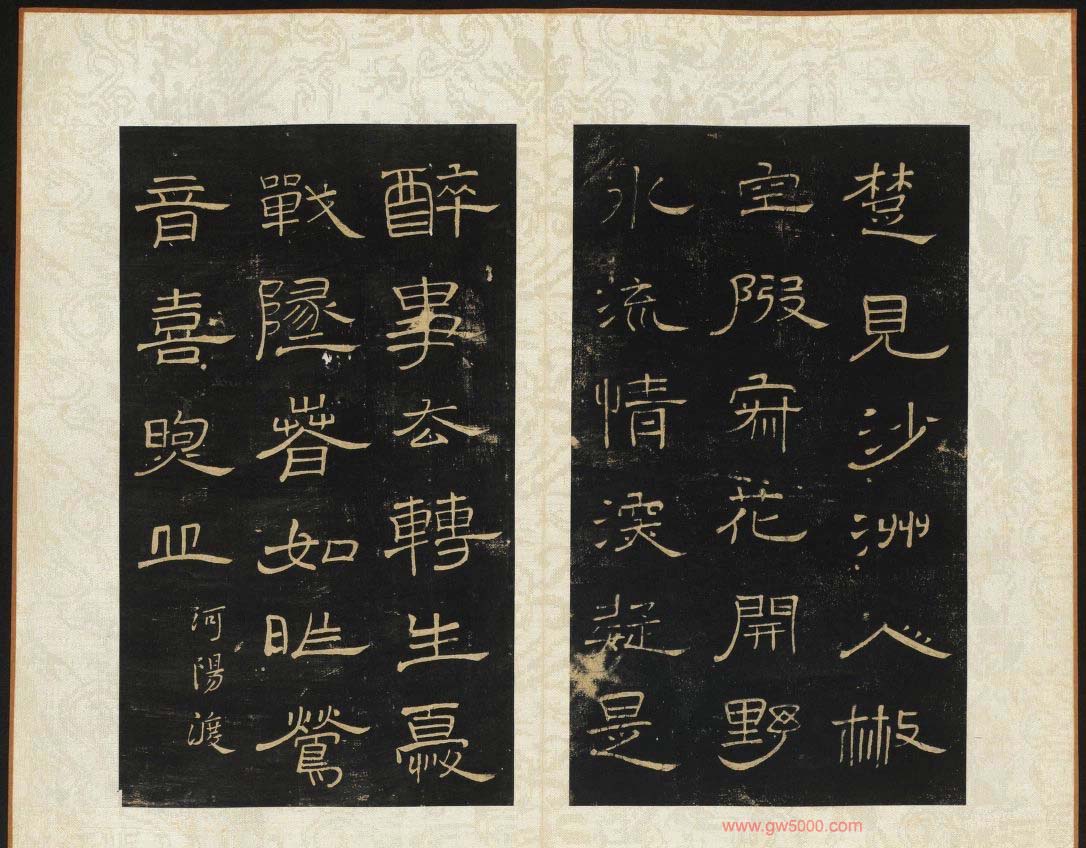 楚見沙洲人散
空寂花開野
水流情深疑是
醉事去轉生憂
戰墜春如昨鶯
音喜
河陽渡
www.gw5000.com